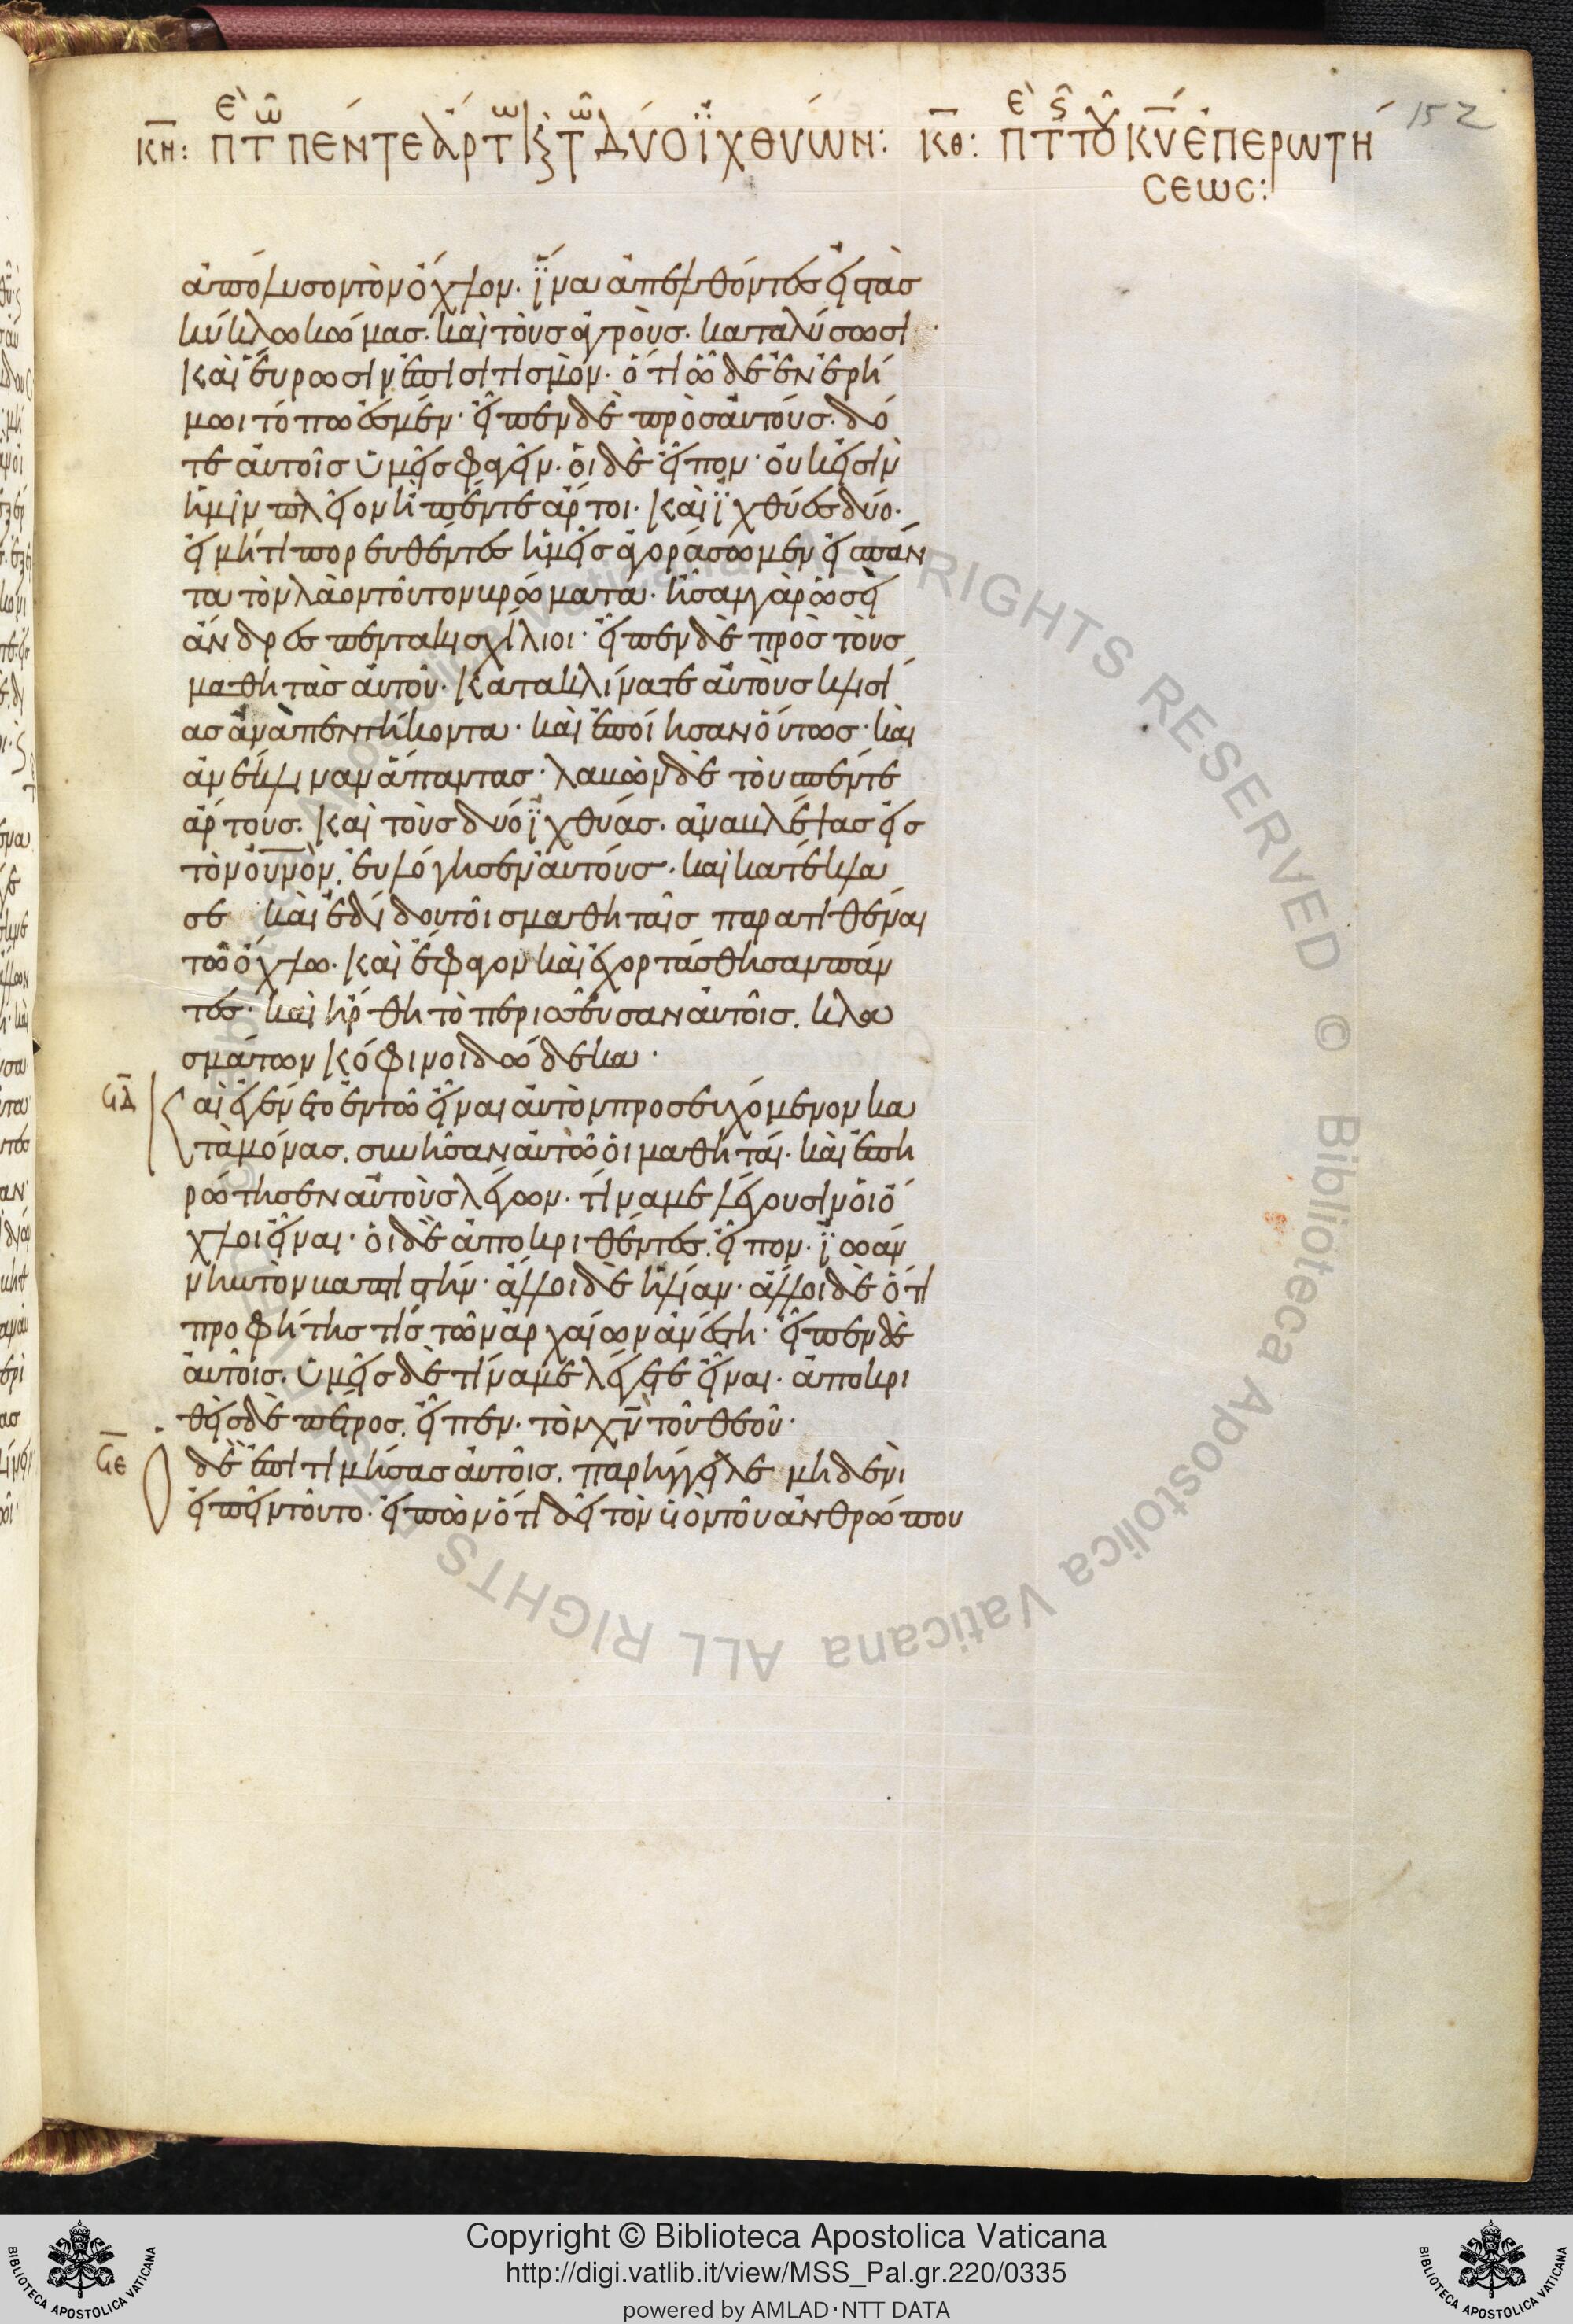 152
κη: πε τῶ πέντε ἄρτω κς τῶ δύο ϊχθύων: κθ: πε τς τοῦ κυ ἐπερωτή
σεως:
ἀπόλυσον τὸν ὄχλον. ἵνα ἀπελθόντες εἰς τὰς
κύκλω κώμας. καὶ τοὺς ἀγρούς. καταλύσωσι
καὶ εὕρωσιν ἐπισιτισμόν. ὅτι ὧδε ἐν ἐρή
μωι τόπω ἐσμέν. εἶπεν δὲ πρὸς αὐτούς. δό
τε αὐτοῖς ὑμεῖς φαγεῖν. οἱ δὲ εἶπον. οὐκ εἰσὶν
ἡμῖν πλεῖον ἢ πέντε ἄρτοι. καὶ ἰχθύες δύο.
εἰ μήτι πορευθέντες ἡμεῖς ἀγοράσωμεν εἰς πάν
τα τὸν λαὸν τοῦτον βρώματα. ἦσαν γὰρ ὡσεὶ
ἄνδρες πεντακισχίλιοι. εἶπεν δὲ πρὸς τοὺς
μαθητὰς αὐτοῦ. κατακλίνατε αὐτοὺς κλισί
ας ἀνὰ πεντήκοντα. καὶ ἐποίησαν οὕτως. καὶ
ἀνέκλιναν ἅπαντας. λαβὼν δὲ τοὺ πέντε
ἄρτους. καὶ τοὺς δύο ϊχθύας. ἀναβλέψας εἰς
τὸν οὐνὸν. εὐλόγησεν αὐτούς. καὶ κατέκλα
σε καὶ ἐδίδου τοῖς μαθηταῖς παρατιθέναι
τῶ ὄχλω. καὶ ἔφαγον καὶ ἐχορτάσθησαν πάν
τες. καὶ ἤρθη τὸ περισσεῦσαν αὐτοῖς. κλα
σμάτων κόφινοι δώδεκα.
ϟδ καὶ ἐγένετο ἐν τῶ εἶναι αὐτὸν προσευχόμενον κα
τὰ μόνας. συνῆσαν αὐτῶ οἱ μαθηταί. καὶ ἐπη
ρώτησεν αὐτοὺς λέγων. τίνα με λέγουσιν οἱ ὄ
χλοι εἶναι. οἱ δὲ ἀποκριθέντες. εἶπον. ϊωάν
νην τὸν βαπτιστήν. ἄλλοι δὲ ἠλίαν. ἄλλοι δὲ ὅτι
προφήτης τίς τῶν ἀρχαίων ἀνέστη. εἶπεν δὲ
αὐτοῖς. ὑμεῖς δὲ τίνα με λέγετε εἶναι. ἀποκρι
θεὶς δὲ πέτρος. εἶπεν. τὸν χν τοῦ θεοῦ.
ϟε ὁ δὲ ἐπιτιμήσας αὐτοῖς. παρήγγειλε μηδενὶ
εἰπεῖν τοῦτο. εἰπὼν ὅτι δεῖ τὸν υἱὸν τοῦ ἀνθρώπου
Copyright © Biblioteca Apostolica Vaticana
http://digi.vatlib.it/view/MSS_Pal.gr.220/0335
powered by AMLAD·NTT DATA
BIBLIOTECA APOSTOLICA VATICANA
BIBLIOTECA APOSTOLICA VATICANA
© Biblioteca Apostolica Vaticana ALL RIGHTS RESERVED © Biblioteca Apostolica Vaticana ALL RIGHTS RESERVED